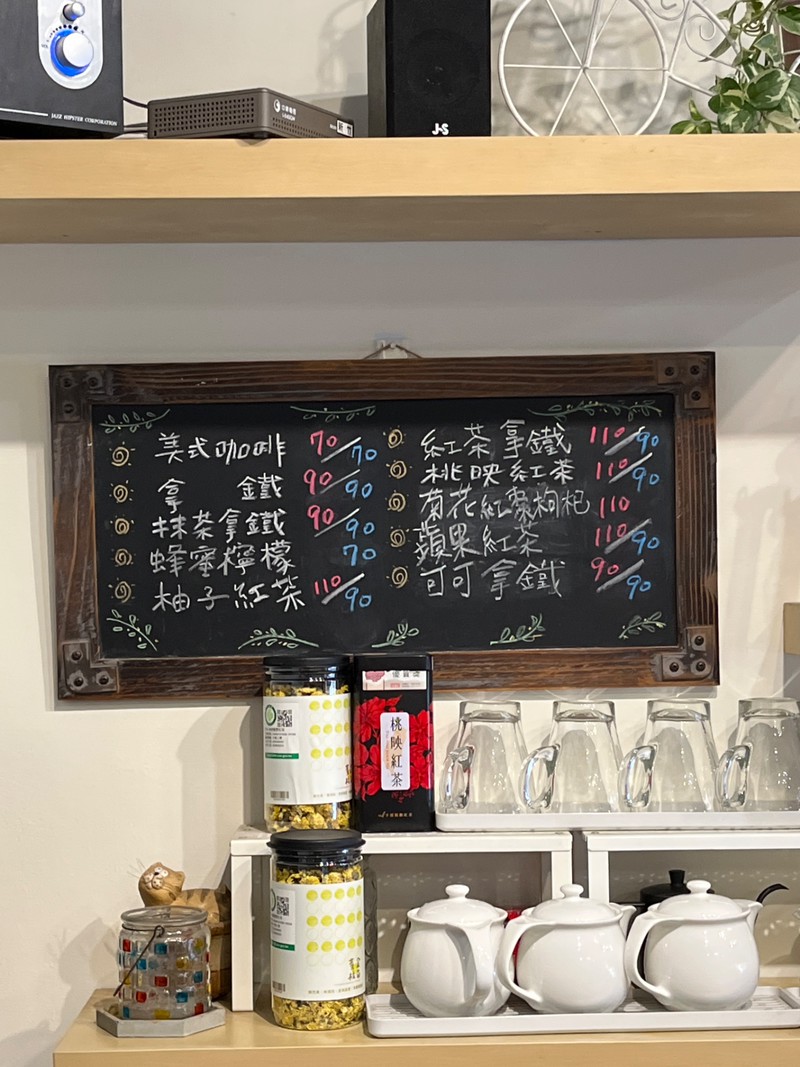 JAZZ HIPSTER CORPORATION
J-S
美式咖啡 70/70
拿 鐵 90/90
抹茶拿鐵 90/90
蜂蜜檸檬 70
柚子紅茶 110/90
紅茶拿鐵 110/90
桃映紅茶 110/90
菊花紅棗枸杞 110
蘋果紅茶 110/90
可可拿鐵 90/90
桃映紅茶